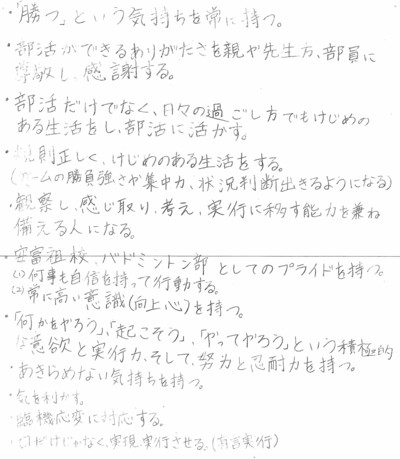 「勝つ」という気持ちを常に持つ。
・部活ができるありがたさを親や先生方、部員に
尊敬し、感謝する。
・部活だけでなく、日々の過ごし方でもけじめの
ある生活をし、部活に活かす。
・規則正しく、けじめのある生活をする。
(ゲームの勝負強さや集中力、状況判断出きるようになる)
・観察し、感じ取り、考え、実行に移す能力を兼ね
備える人になる。
・安富祖校、バドミントン部 としてのプライドを持つ。
(1)何事も自信を持って行動する。
(2)常に高い意識(向上心)を持つ。
・「何かをやろう」、「起こそう」、「やってやろう」という積極的
な意欲と実行力、そして、努力と忍耐力を持つ。
・あきらめない気持ちを持つ。
・気を利かす。
・臨機応変に対応する。
・口だけじゃなく、実現、実行させる。(有言実行)